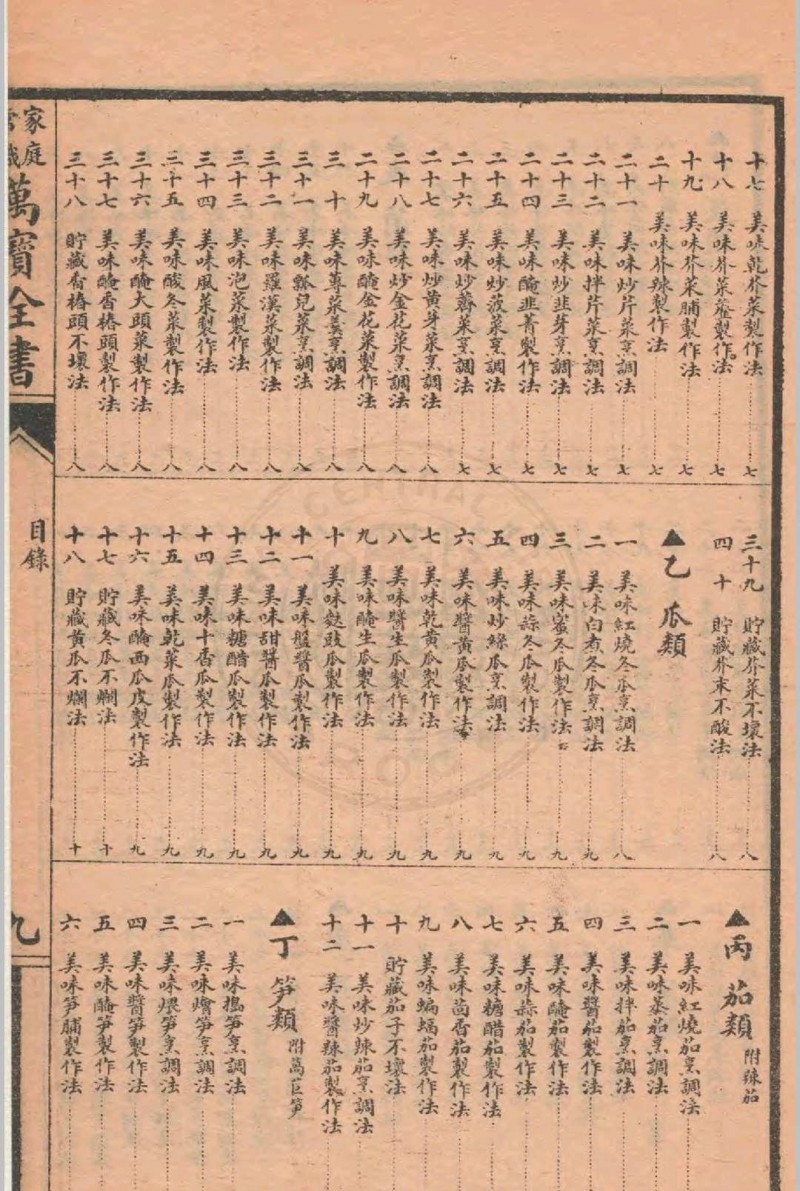 十七 美味乾芥菜製作法 七
十八 美味芥菜虀製作法 七
十九 美味芥菜脯製作法 七
二十 美味芥辣製作法 七
二十一 美味炒芹菜烹調法 七
二十二 美味拌芹菜烹調法 七
二十三 美味炒韭芽烹調法 七
二十四 美味醃韭菁製作法 七
二十五 美味炒菠菜烹調法 七
二十六 美味炒薺菜烹調法 七
二十七 美味炒黃芽菜烹調法 八
二十八 美味炒金花菜烹調法 八
二十九 美味醃金花菜製作法 八
三十 美味蓴菜羹烹調法 八
三十一 美味瓢兒菜烹調法 八
三十二 美味羅漢菜製作法 八
三十三 美味泡菜製作法 八
三十四 美味風菜製作法 八
三十五 美味酸冬菜製作法 八
三十六 美味醃大頭菜製作法 八
三十七 美味醃香椿頭製作法 八
三十八 貯藏香椿頭不壞法 八
三十九 貯藏芥菜不壞法 八
四十 貯藏芥末不酸法 八
▲乙 瓜類
一 美味紅燒冬瓜烹調法 八
二 美味白煮冬瓜烹調法 九
三 美味蜜冬瓜製作法 九
四 美味蒜冬瓜製作法 九
五 美味炒絲瓜烹調法 九
六 美味醬黃瓜製作法 九
七 美味乾黃瓜製作法 九
八 美味醬生瓜製作法 九
九 美味醃生瓜製作法 九
十 美味豉瓜製作法 九
十一 美味盤醬瓜製作法 九
十二 美味甜醬瓜製作法 九
十三 美味糖醋瓜製作法 九
十四 美味十香瓜製作法 九
十五 美味乾菜瓜製作法 九
十六 美味醃西瓜皮製作法 九
十七 貯藏冬瓜不爛法 十
十八 貯藏黃瓜不爛法 十
▲丙 茄類 附辣茄
一 美味紅燒茄烹調法
二 美味蒸茄烹調法
三 美味拌茄烹調法
四 美味醬茄製作法
五 美味醃茄製作法
六 美味蒜茄製作法
七 美味糖醋茄製作法
八 美味茴香茄製作法
九 美味蝙蝠茄製作法
十 貯藏茄子不壞法
十一 美味炒辣茄烹調法
十二 美味醬辣茄製作法
▲丁 笋類 附萵苣笋
一 美味搗笋烹調法
二 美味燴笋烹調法
三 美味煨笋烹調法
四 美味醬笋製作法
五 美味醃笋製作法
六 美味笋脯製作法
家庭常識萬寶全書
目錄
九